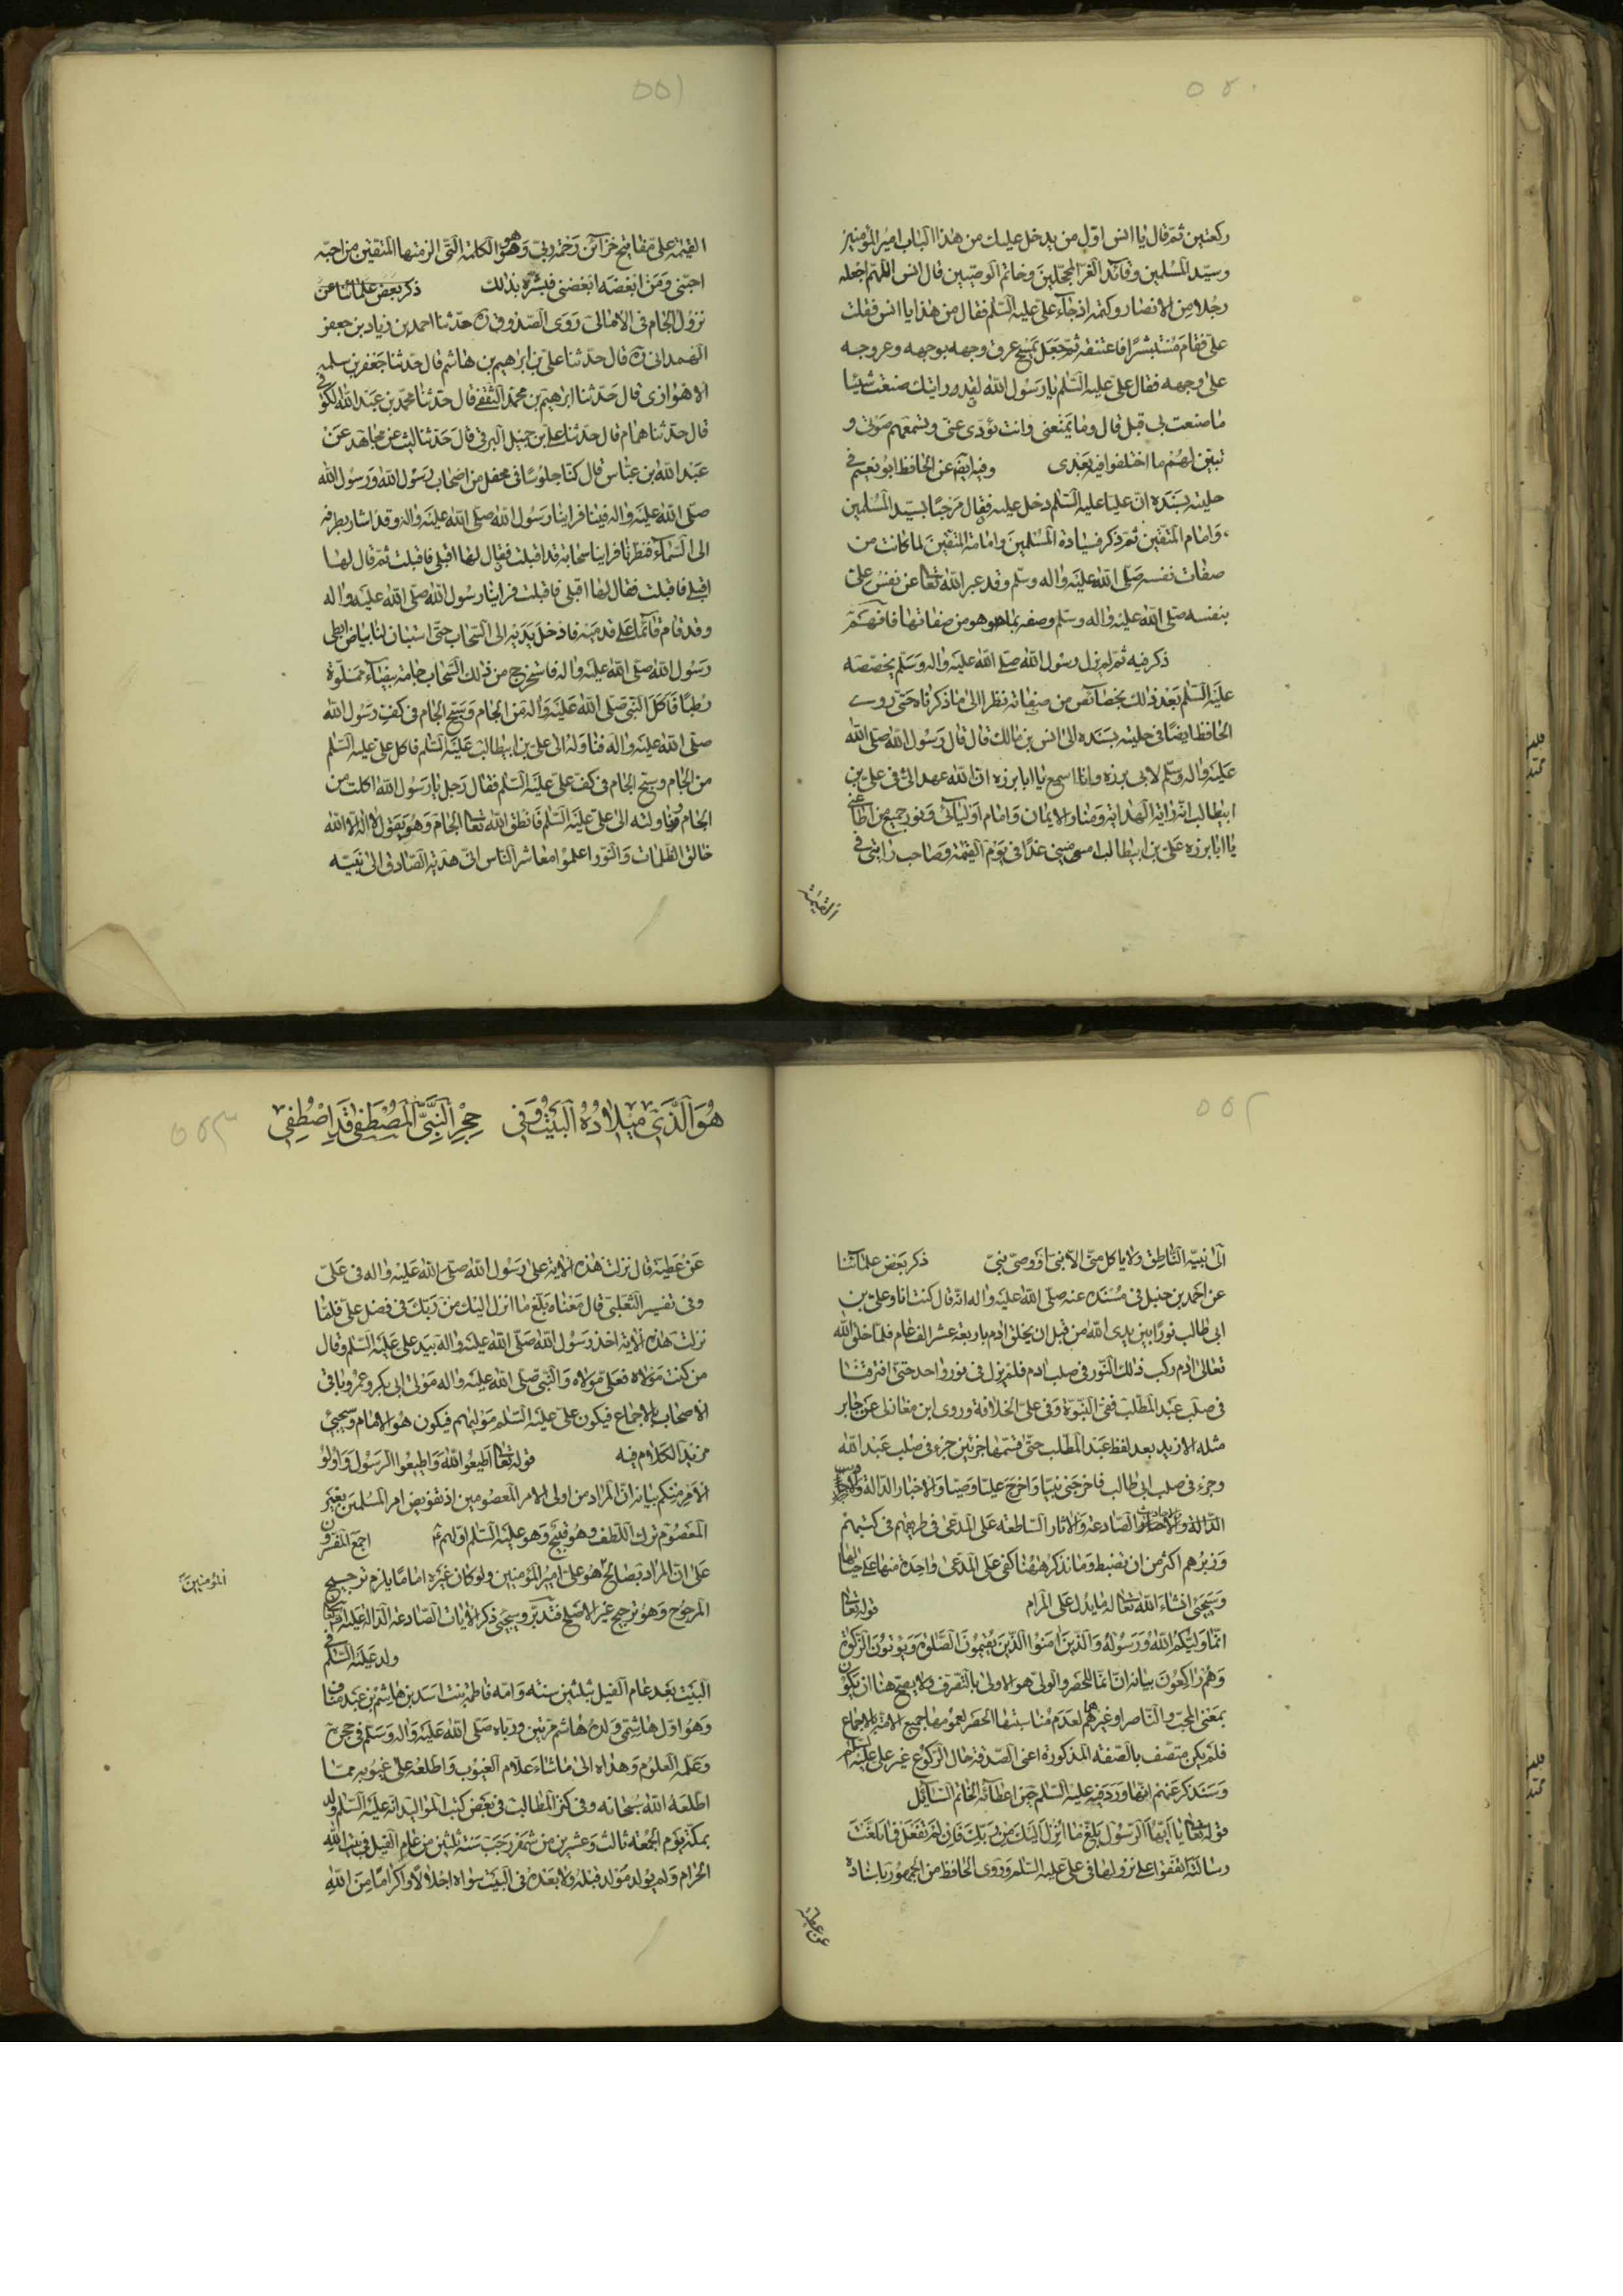 ٥٥٠
ركعتين ثم قال يا انس اول من يدخل عليك من هذا الباب امير المؤمنين
وسيد المسلمين وقائد الغر المحجلين وخاتم الوصيين قال انس اللهم اجعله
رجلا من الانصار وكتمته اذ جاء علي عليه السلم فقال من هذا يا انس فقلت
علي فقام مستبشرا فاعتنقه ثم جعل يمسح عرق وجهه بوجهه وعرق وجه
علي وجهه فقال علي عليه السلم يا رسول الله لقد رايتك صنعت شيئا
ما صنعت بي قبل قال وما يمنعني وانت تؤدي عني وتسمعهم صوتي و
تبين لهم ما اختلفوا فيه بعدي وفيه ايضا عن الحافظ ابو نعيم في
حليته بسنده ان عليا عليه السلم دخل عليه فقال مرحبا بسيد المسلمين
وامام المتقين ثم ذكر سيادة المسلمين وامامة المتقين لما كانت من
صفات نفسه صلى الله عليه واله وسلم وقد عبر الله تعالى عن نفس علي
بنفسه صلى الله عليه واله وسلم وصفه بما هو من صفاتها فافهم
ذكر فيه ثم لم يزل رسول الله صلى الله عليه واله وسلم يخصصه
عليه السلم بعد ذلك بخصائص من صفاته نظرا الى ما ذكرناه حتى روى
الحافظ ايضا في حليته بسنده الى انس بن مالك قال قال رسول الله صلى الله
عليه واله وسلم لابي برزه وانا اسمع يا ابا برزه ان الله عهد الي في علي بن
ابيطالب انه راية الهداية ومنار الايمان وامام اوليائي ونور جميع من اطاعني
يا ابا برزه علي بن ابيطالب اميني غدا في يوم القيمة وصاحب رايتي في
القيمة
٥٥١
القيمة على مفاتيح خزائن رحمة ربي وهو الكلمة التي الزمتها المتقين من احبه
احبني ومن ابغضه ابغضني فبشره بذلك ذكر بعض علمائنا عن
نزول الجام في الامالي روى الصدوق ره حدثنا احمد بن زياد بن جعفر
الهمداني ره قال حدثنا علي بن ابرهيم بن هاشم قال حدثنا جعفر بن سلمه
الاهوازي قال حدثنا ابرهيم بن محمد الثقفي قال حدثنا محمد بن عبد الله الكوفي
قال حدثنا همام قال حدثنا علي بن جميل البرقي قال حدثنا ليث عن مجاهد عن
عبد الله بن عباس قال كنا جلوسا في محفل من اصحاب رسول الله ورسول الله
صلى الله عليه واله فينا فراينا رسول الله صلى الله عليه واله وقد اشار بطرفه
الى السماء فنظرنا فراينا سحابة قد اقبلت فقال لها اقبلي فاقبلت ثم قال لها
اقبلي فاقبلت فقال لها اقبلي فاقبلت فراينا رسول الله صلى الله عليه واله
وقد قام قائما على قدميه فادخل يديه الى السحاب حتى استبان لنا بياض ابطي
رسول الله صلى الله عليه واله فاستخرج من ذلك السحاب جامة بيضاء مملوة
رطبا فاكل النبي صلى الله عليه واله من الجام وسبح الجام في كف رسول الله
صلى الله عليه واله فناوله الى علي بن ابيطالب عليه السلم فاكل علي عليه السلم
من الجام وسبح الجام في كف علي عليه السلم فقال رجل يا رسول الله اكلت من
الجام وناولته الى علي عليه السلم فانطق الله تعالى الجام وهو يقول لا اله الا الله
خالق الظلمات والنور اعلموا معاشر الناس اني هدية الصادق الى نبيه
٥٥٢
الى نبيه الناطق ولا ياكل مني الا نبي او وصي نبي ذكر بعض علمائنا
عن احمد بن حنبل في مسنده عنه صلى الله عليه واله انه قال كنت انا وعلي بن
ابي طالب نورا بين يدي الله من قبل ان يخلق ادم باربعة عشر الف عام فلما خلق الله
تعالى ادم ركب ذلك النور في صلب ادم فلم يزل في نور واحد حتى افترقنا
في صلب عبد المطلب ففي النبوة وفي علي الخلافة وروى ابن مغازلي عن جابر
مثله الا زيد بعد لفظ عبد المطلب حتى قسمها جزئين جزء في صلب عبد الله
وجزء في صلب ابي طالب فاخرجني نبيا واخرج عليا وصيا والاخبار الدالة
الدالة والاحاديث الصادعة والاثار الساطعة على المدعى في طريقهم في كتبهم
وزبرهم اكثر من ان تضبط وما نذكر ههنا كفى على المدعى واحدة منها على حيالها
وسيجئ انشاء الله تعالى له ما يدل على المرام قوله تعالى
انما وليكم الله ورسوله والذين امنوا الذين يقيمون الصلوة ويوتون الزكوة
وهم راكعون بيانه ان انما للحصر والولي هو الاولى بالتصرف ولا يصح هنا ان يكون
بمعنى المحب والناصر او غيرهما لعدم مناسبتها الحصر لعمومها جميع الامة بالاجماع
فلم يكن متصف بالصفة المذكورة اعني الصدقة حال الركوع غير علي عليه السلم
وسنذكر عنهم انها وردت فيه عليه السلم حين اعطائه الخاتم السائل
قوله تعالى يا ايها الرسول بلغ ما انزل اليك من ربك فان لم تفعل فما بلغت
رسالته اتفقوا على نزولها في علي عليه السلم وروى الحافظ من الجمهور باسناده
عن عطية
٥٥٣
هو الذي ميلاده البيت وفي حجر النبي المصطفى قد اصطفي
عن عطية قال نزلت هذه الاية على رسول الله صلى الله عليه واله في علي
وفي تفسير الثعلبي قال معناه بلغ ما انزل اليك من ربك في فضل علي فلما
نزلت هذه الاية اخذ رسول الله صلى الله عليه واله بيد علي عليه السلم وقال
من كنت مولاه فعلي مولاه والنبي صلى الله عليه واله مولى ابي بكر وعمر وباقي
الاصحاب بالاجماع فيكون علي عليه السلم مولاهم فيكون هو الامام وسيجئ
مزيد الكلام فيه قوله تعالى اطيعوا الله واطيعوا الرسول واولو
الامر منكم بيانه ان المراد من اولى الامر المعصومين اذ تفويض امر المسلمين بغير
المعصوم ترك اللطف وهو قبيح وهو عليه السلم اولهم اجمع المفسرون
على ان المراد بصالح هو علي امير المؤمنين ولو كان غيره اماما يلزم ترجيح
المؤمنين
المرجوح وهو ترجيح غير الاصلح فتدبر وسيجئ ذكر الايات الصادعة الدالة عليه
ولد عليه السلم في
البيت بعد عام الفيل بثلثين سنة وامه فاطمة بنت اسد بن هاشم بن عبد مناف
وهو اول هاشمي ولده هاشم مرتين ورباه صلى الله عليه واله وسلم في حجره
وعلمه العلوم وهداه الى ما شاء علام الغيوب واطلعه على غيوبه مما
اطلعه الله سبحانه وفي كنز المطالب في بعض كتب المواليد انه عليه السلم ولد
بمكة يوم الجمعة ثالث وعشرين من شهر رجب سنة ثلثين من عام الفيل في بيت الله
الحرام ولم يولد مولد قبله ولا بعده في البيت سواه اجلالا واكراما من الله